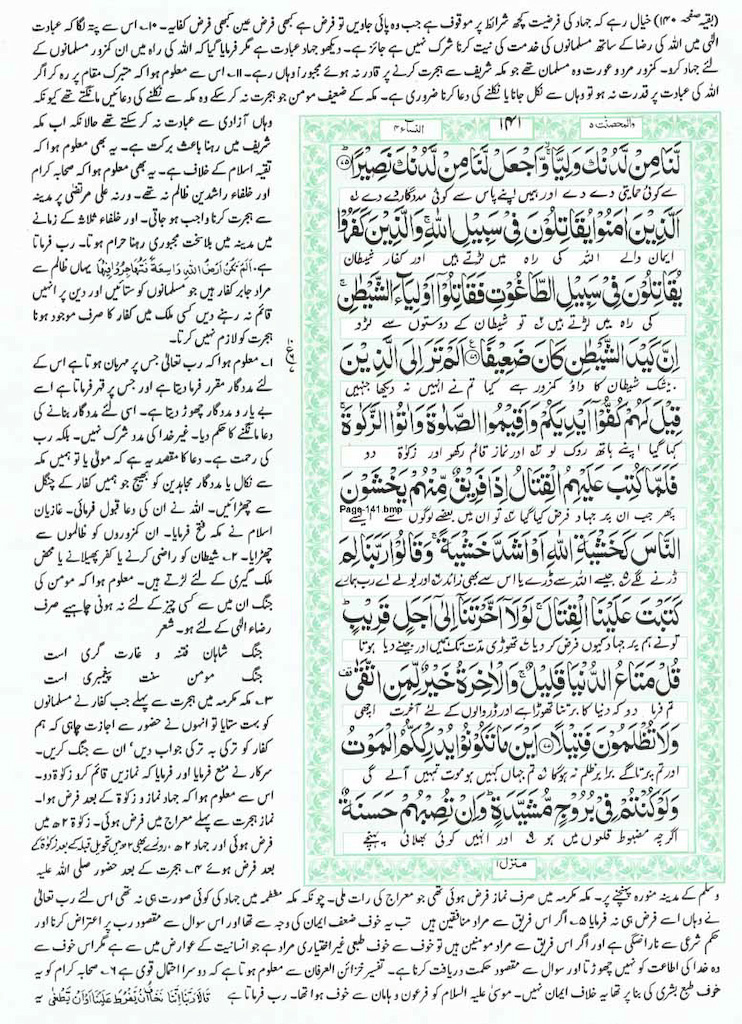 (بقیہ صفحہ ۱۴۰) خیال رہے کہ جہاد کی فرضیت کچھ شرائط پر موقوف ہے جب وہ پائی جاویں تو فرض ہے کبھی فرض عین کبھی فرض کفایہ۔ ۱۰؎ اس سے پتہ لگا کہ عبادت
الٰہی میں اللہ کی رضا کے ساتھ مسلمانوں کی خدمت کی نیت کرنا شرک نہیں ہے جائز ہے۔ دیکھو جہاد عبادت ہے مگر فرمایا گیا کہ اللہ کی راہ میں ان کمزور مسلمانوں کے
لئے جہاد کرو۔ کمزور مرد و عورت وہ مسلمان تھے جو مکہ شریف سے ہجرت کرنے پر قادر نہ ہوئے مجبوراً وہاں رہے۔ ۱۱؎ اس سے معلوم ہوا کہ متبرک مقام پر رہ کر اگر
اللہ کی عبادت پر قدرت نہ ہو تو وہاں سے نکل جانا یا نکلنے کی دعا کرنا ضروری ہے۔ مکہ کے ضعیف مومن جو ہجرت نہ کر سکے وہ مکہ سے نکلنے کی دعائیں مانگتے تھے کیونکہ
وہاں آزادی سے عبادت نہ کر سکتے تھے حالانکہ اب مکہ
شریف میں رہنا باعث برکت ہے۔ یہ بھی معلوم ہوا کہ
تقیہ اسلام کے خلاف ہے۔ یہ بھی معلوم ہوا کہ صحابہ کرام
اور خلفاء راشدین ظالم نہ تھے۔ ورنہ علی مرتضٰی پر مدینہ
سے ہجرت کرنا واجب ہو جاتی۔ اور خلفاء ثلاثہ کے زمانے
میں مدینہ میں بلاسخت مجبوری رہنا حرام ہوتا۔ رب فرماتا
ہے۔ اَلَمْ تَكُنْ اَرْضُ اللّٰهِ وَاسِعَةً فَتُهَاجِرُوْا فِيْهَا یہاں ظالم سے
مراد جابر کفار ہیں جو مسلمانوں کو ستائیں اور دین پر انہیں
قائم نہ رہنے دیں کسی ملک میں کفار کا صرف موجود ہونا
ہجرت کو لازم نہیں کرتا۔
۱؎ معلوم ہوا کہ رب تعالٰی جس پر مہربان ہوتا ہے اس کے
لئے مددگار مقرر فرما دیتا ہے اور جس پر قہر فرماتا ہے اسے
بے یار و مددگار چھوڑ دیتا ہے۔ اسی لئے مددگار بنانے کی
دعا مانگنے کا حکم دیا۔ غیر خدا کی مدد شرک نہیں۔ بلکہ رب
کی رحمت ہے۔ دعا کا مقصد یہ ہے کہ مولٰی یا تو ہمیں مکہ
سے نکال یا مددگار مجاہدین کو بھیج جو ہمیں کفار کے چنگل
سے چھڑائیں۔ اللہ نے ان کی دعا قبول فرمائی۔ غازیان
اسلام نے مکہ فتح فرمایا۔ ان کمزوروں کو ظالموں سے
چھڑایا۔ ۲؎ شیطان کو راضی کرنے یا کفر پھیلانے یا محض
ملک گیری کے لئے لڑتے ہیں۔ معلوم ہوا کہ مومن کی
جنگ ان میں سے کسی چیز کے لئے نہ ہونی چاہیے صرف
رضاء الٰہی کے لئے ہو۔ شعر
جنگ شاہاں فتنہ و غارت گری است
جنگ مومن سنت پیغمبری است
۳؎ مکہ مکرمہ میں ہجرت سے پہلے جب کفار نے مسلمانوں
کو بہت ستایا تو انہوں نے حضور سے اجازت چاہی کہ ہم
کفار کو ترکی بہ ترکی جواب دیں' ان سے جنگ کریں۔
سرکار نے منع فرمایا اور فرمایا کہ نمازیں قائم کرو زکوٰۃ دو۔
اس سے معلوم ہوا کہ جہاد نماز و زکوٰۃ کے بعد فرض ہوا۔
نماز ہجرت سے پہلے معراج میں فرض ہوئی۔ زکوٰۃ ۲ھ میں
فرض ہوئی اور جہاد ۲ھ، روزے بھی ۲ھ میں تحویل قبلہ کے بعد زکوٰۃ کے
بعد فرض ہوئے ۴؎ ہجرت کے بعد حضور صلی اللہ علیہ
والمحصنت ۵
۱۴۱
النساء ۴
لَّنَا مِنْ لَّدُنْكَ وَلِيًّا ۚ وَّاجْعَلْ لَّنَا مِنْ لَّدُنْكَ نَصِيْرًا ۝۷۵
سے کوئی حمایتی دے دے اور ہمیں اپنے پاس سے کوئی مددگار دے دے
اَلَّذِيْنَ اٰمَنُوْا يُقَاتِلُوْنَ فِيْ سَبِيْلِ اللّٰهِ ۚ وَالَّذِيْنَ كَفَرُوْا
ایمان والے اللہ کی راہ میں لڑتے ہیں اور کفار شیطان
يُقَاتِلُوْنَ فِيْ سَبِيْلِ الطَّاغُوْتِ فَقَاتِلُوْٓا اَوْلِيَآءَ الشَّيْطٰنِ ۚ
کی راہ میں لڑتے ہیں تو شیطان کے دوستوں سے لڑو
اِنَّ كَيْدَ الشَّيْطٰنِ كَانَ ضَعِيْفًا ۝۷۶ اَلَمْ تَرَ اِلَى الَّذِيْنَ
بیشک شیطان کا داؤ کمزور ہے کیا تم نے انہیں نہ دیکھا جنہیں
قِيْلَ لَهُمْ كُفُّوْٓا اَيْدِيَكُمْ وَاَقِيْمُوا الصَّلٰوةَ وَاٰتُوا الزَّكٰوةَ ۚ
کہا گیا اپنے ہاتھ روک لو اور نماز قائم رکھو اور زکوٰۃ دو
فَلَمَّا كُتِبَ عَلَيْهِمُ الْقِتَالُ اِذَا فَرِيْقٌ مِّنْهُمْ يَخْشَوْنَ
پھر جب ان پر جہاد فرض کیا گیا تو ان میں بعضے لوگوں سے ایسے
Page-141.bmp
النَّاسَ كَخَشْيَةِ اللّٰهِ اَوْ اَشَدَّ خَشْيَةً ۚ وَقَالُوْا رَبَّنَا لِمَ
ڈرنے لگے جیسے اللہ سے ڈرے یا اس سے بھی زائد اور بولے اے رب ہمارے
كَتَبْتَ عَلَيْنَا الْقِتَالَ ۚ لَوْلَآ اَخَّرْتَنَآ اِلٰٓى اَجَلٍ قَرِيْبٍ ؕ
تو نے ہم پر جہاد کیوں فرض کر دیا تھوڑی مدت تک ہمیں اور جینے دیا ہوتا
قُلْ مَتَاعُ الدُّنْيَا قَلِيْلٌ ۚ وَالْاٰخِرَةُ خَيْرٌ لِّمَنِ اتَّقٰى ۣ
تم فرما دو کہ دنیا کا برتنا تھوڑا ہے اور ڈر والوں کے لئے آخرت اچھی
وَلَا تُظْلَمُوْنَ فَتِيْلًا ۝۷۷ اَيْنَ مَا تَكُوْنُوْا يُدْرِكْكُّمُ الْمَوْتُ
اور تم پر تاگے برابر ظلم نہ ہوگا تم جہاں کہیں ہو موت تمہیں آ لے گی
وَلَوْ كُنْتُمْ فِيْ بُرُوْجٍ مُّشَيَّدَةٍ ؕ وَاِنْ تُصِبْهُمْ حَسَنَةٌ
اگرچہ مضبوط قلعوں میں ہو اور انہیں کوئی بھلائی پہنچے
منزل ۱
وسلم کے مدینہ منورہ پہنچنے پر۔ مکہ مکرمہ میں صرف نماز فرض ہوئی تھی جو معراج کی رات ملی۔ چونکہ مکہ معظمہ میں جہاد کی کوئی صورت ہی نہ تھی اس لئے رب تعالٰی
نے وہاں اسے فرض ہی نہ فرمایا ۵؎ اگر اس فریق سے مراد منافقین ہیں تب یہ خوف ضعف ایمان کی وجہ سے تھا اور اس سوال سے مقصود رب پر اعتراض کرنا اور
حکم شرعی سے ناراضگی ہے اور اگر اس فریق سے مراد مومنین ہیں تو خوف سے خوف طبعی غیر اختیاری مراد ہے جو انسانیت کے عوارض میں سے ہے مگر اس خوف سے
وہ خدا کی اطاعت کو نہیں چھوڑتا اور سوال سے مقصود حکمت دریافت کرنا ہے۔ تفسیر خزائن العرفان سے معلوم ہوتا ہے کہ دوسرا احتمال قوی ہے ۶؎ صحابہ کرام کو یہ
خوف طبع بشری کی بنا پر تھا یہ خلاف ایمان نہیں۔ موسٰی علیہ السلام کو فرعون و ہامان سے خوف ہوا تھا۔ رب فرماتا ہے قَالَا رَبَّنَآ اِنَّنَا نَخَافُ اَنْ يَّفْرُطَ عَلَيْنَآ اَوْ اَنْ يَّطْغٰى یہ